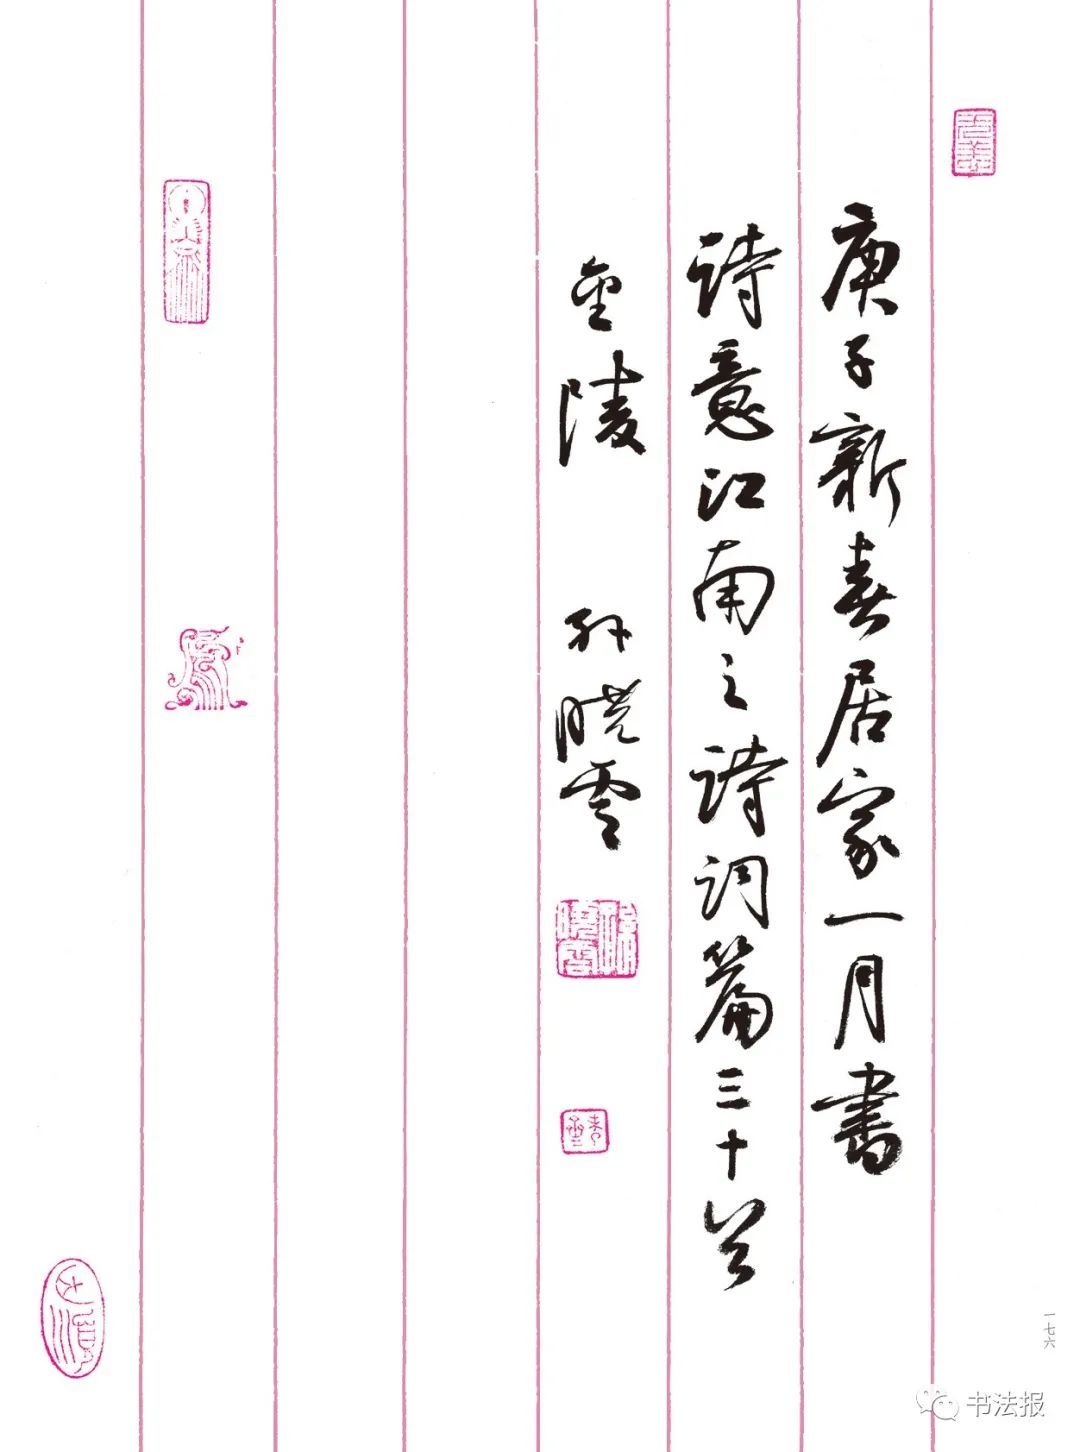 庚子新春居家一月書
詩意江南之詩詞篇三十首
金陵 孙曉雲
一七六
书法报